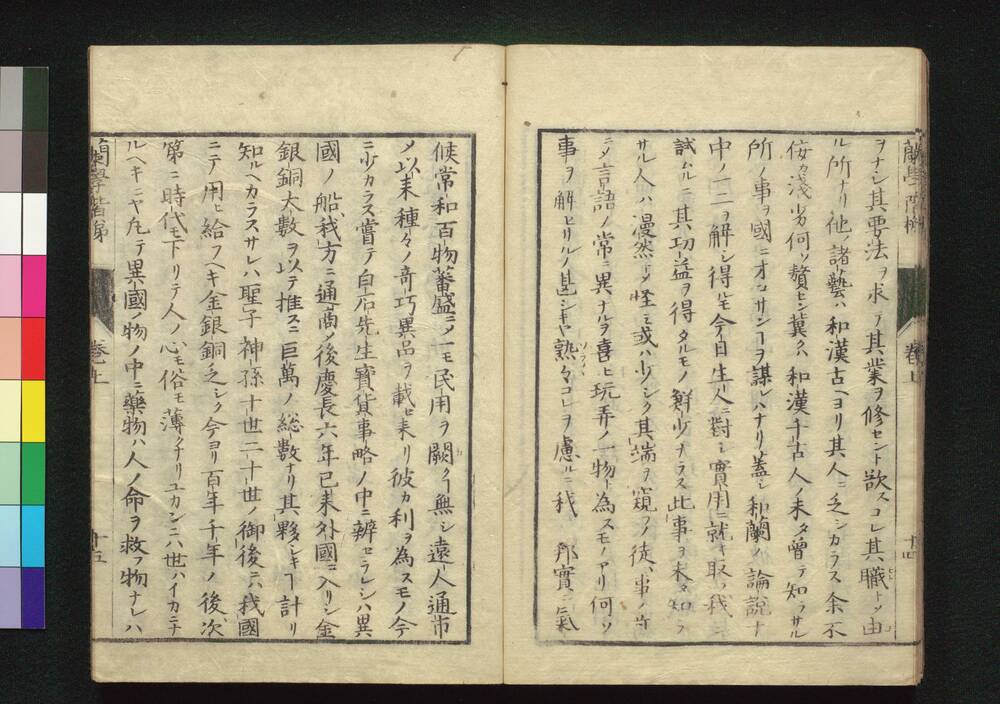 蘭學階梯
巻上
十四
ヲナシ其要法ヲ求メテ其業ヲ修セント欲スコレ其職トソ由
ル所ナリ他ノ諸藝ハ和漢古ヘヨリ其人ニ乏シカラス余不
佞カ淺劣何ソ贅セン冀クハ和漢千古人ノ未タ曾テ知ラサル
所ノ事ヲ國ニオコサンヿヲ謀レハナリ蓋シ和蘭ノ論説ナ
中ノ一二ヲ解シ得ルモ今日生人ニ對シ實用ニ就キ取テ我ニ
試ムルニ其功益ヲ得タルモノ鮮少ナラス此事ヲ未タ知ラ
サル人ハ漫然トノ怪ミ或ハ少シク其端ヲ窺フノ徒ハ事ノ奇
ニノ言語ノ常ニ異ナルヲ喜ヒ玩弄ノ一物ト為スモノアリ何ソ
事ヲ解セサルノ甚シキヤ熟々コレヲ慮ルニ我 邦實ニ氣
候常和百物蕃盛ニノ一モ民用ヲ闕クヿ無シ遠人通市
ノ以来種々ノ奇巧異品ヲ載セ来リ彼カ利ヲ為スモノ今
ニ少カラス嘗テ白石先生寶貨事略ノ中ニ辨セラレシハ異
國ノ船我方ニ通商ノ後慶長六年已来外國ニ入リシ金
銀銅大數ヲ以テ推スニ巨萬ノ総數ナリ其夥シキヿ計リ
知ルヘカラスサレハ聖子神孫十世二十世ノ御後ニハ我國
ニテ用ヒ給フヘキ金銀銅乏シク今ヨリ百年千年ノ後次
第ニ時代モ下リテ人ノ心モ俗モ薄クナリユカンニハ世ハイカニナ
ルヘキニヤ凡テ異國ノ物ノ中ニ藥物ハ人ノ命ヲ救フ物ナレハ
蘭學階梯
巻上
十五